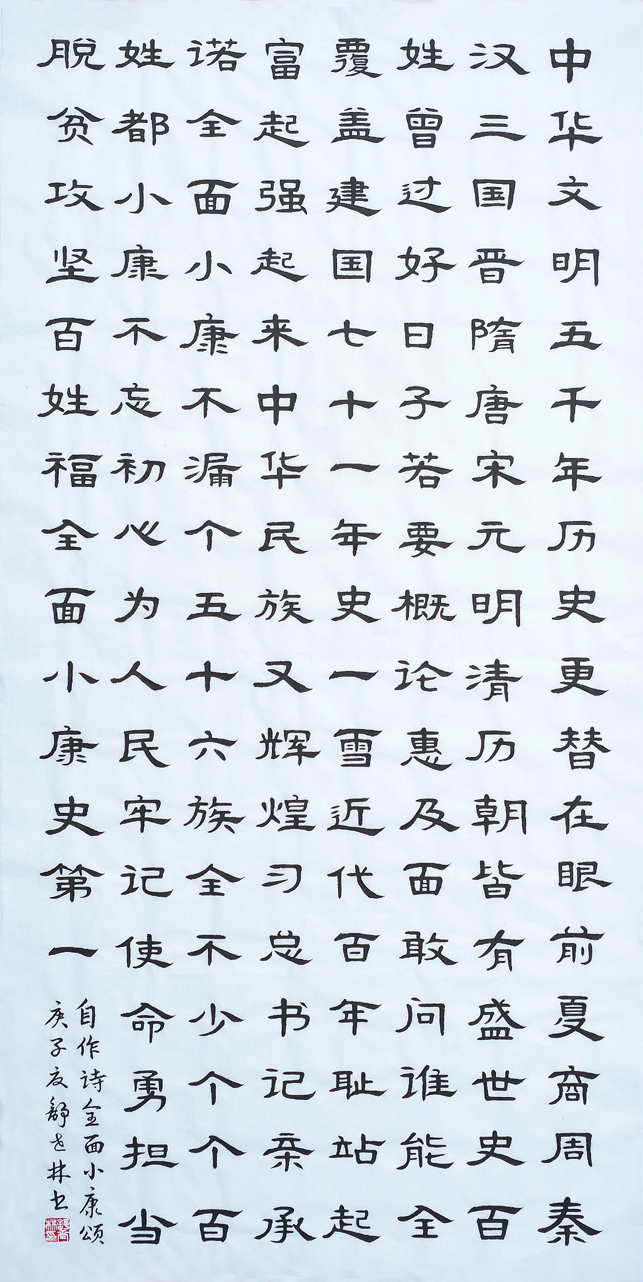 中华文明五千年历史更替在眼前夏商周秦
汉三国晋隋唐宋元明清历朝皆有盛世史百
姓曾过好日子若要概论惠及面敢问谁能全
覆盖建国七十一年史一雪近代百年耻站起
富起强起来中华民族又辉煌习总书记亲承
诺全面小康不漏个五十六族全不少个个百
姓都小康不忘初心为人民牢记使命勇担当
脱贫攻坚百姓福全面小康史第一
自作诗全面小康颂
庚子夏舒世林书